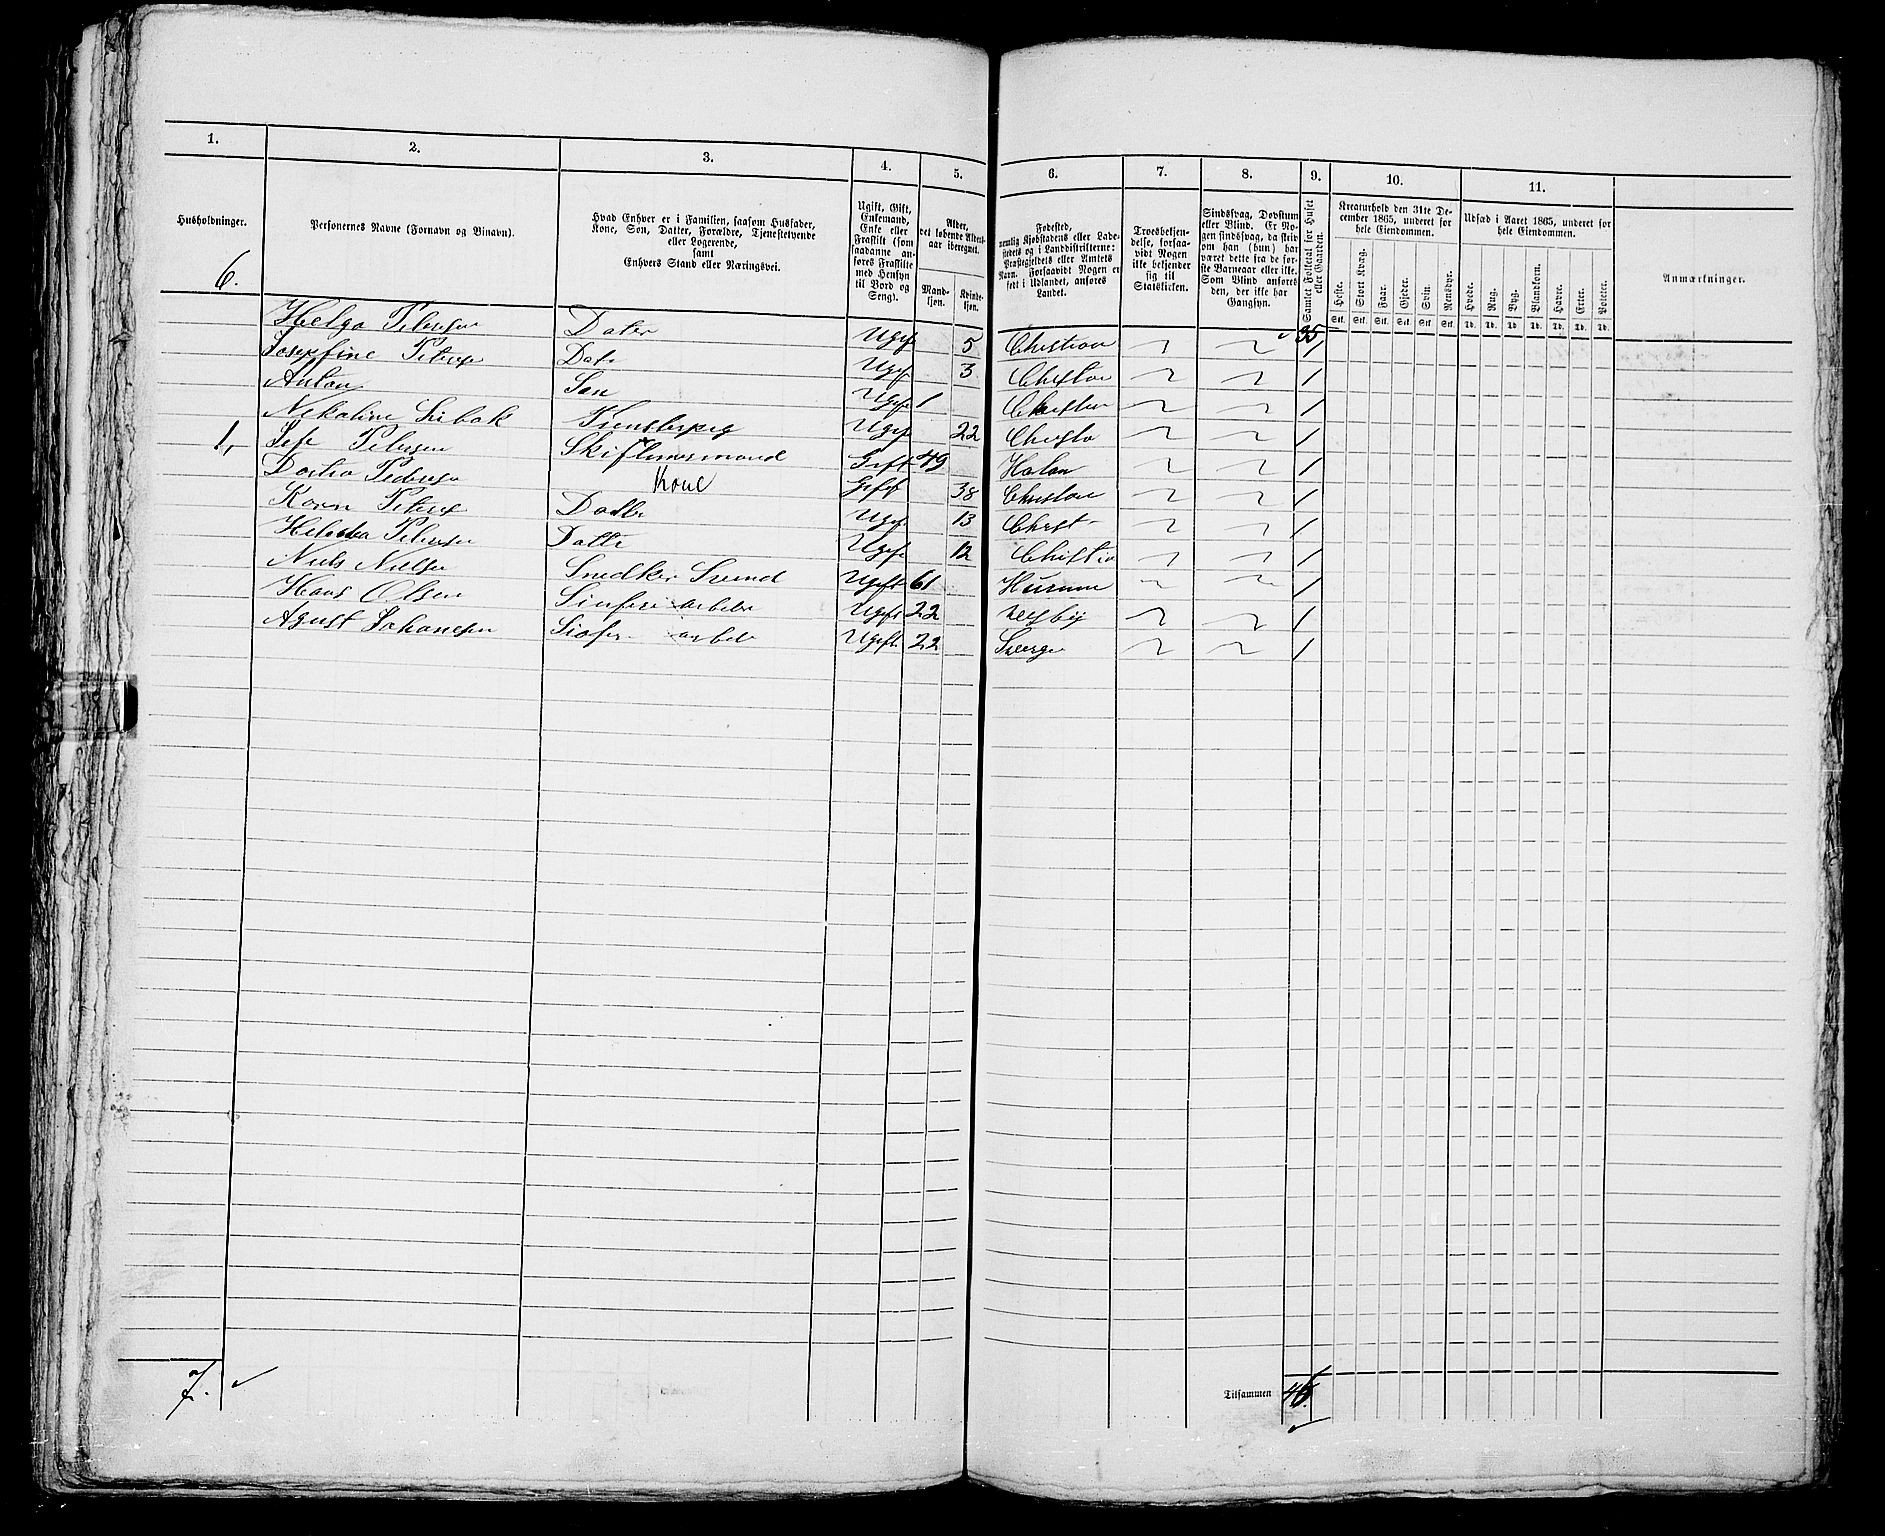 1. 2. 3. 4. 5. 6. 7. 8. 9. 10. 11.
Husholdninger.
Personernes Navne (Fornavn og Binavn).
Hvad Enhver er i Familien, saasom Husfader,
Kone, Søn, Datter, Forældre, Tjenestetyende
eller Logerende,
samt
Enhvers Stand eller Næringsvei.
Ugift, Gift,
Enkemand,
Enke eller
Fraskilt (som
saadanne an-
føres Fraskilte
med Hensyn
til Bord og
Seng).
Alder,
det løbende Alders-
aar iberegnet.
Mand-
kjøn.
Kvinde-
kjøn.
Fødested,
nemlig Kjøbstadens eller Lade-
stedets og i Landdistrikterne:
Præstegjeldets eller Amtets
Navn. Forsaavidt Nogen er
født i Udlandet, anføres
Landet.
Troesbekjen-
delse, forsaa-
vidt Nogen
ikke bekjender
sig til
Statskirken.
Sindssvag, Døvstum
eller Blind. Er No-
gen sindssvag, da skriv
om han (hun) har
været dette fra de før-
ste Barneaar eller ikke.
Som Blind anføres
den, der ikke har
Gangsyn.
Samlet Folketal for Huset
eller Gaarden.
Kreaturhold den 31te De-
cember 1865, underet for
hele Eiendommen.
Heste. Stort Kvæg. Faar. Gjeder. Svin. Rensdyr.
Stk. Stk. Stk. Stk. Stk. Stk.
Udsæd i Aaret 1865, underet for
hele Eiendommen.
Hvede. Rug. Byg. Blandkorn. Havre. Erter. Poteter.
Td. Td. Td. Td. Td. Td. Td.
Anmærkninger.
6. 35
Helga Petersen Dater Ugif 5 Christian 1
Josepfine Petersen Date Ugif 3 1
Anton Søn Ugift 1 1
Ugif 22 1
1, Petersen Gift 49 1
Pedersen Kone Gift 38 1
Karn Peters Datter Ugif 13 Christ 1
Petersen Datte Ugif 12 Christia 1
Niels Nielsen Snedker Svend Ugift 61 Hurum 1
Hans Olsen arbeder Ugift 22 1
Agust Johanesen arbede Ugift 22 Sverge 1
7. Tilsammen 46.